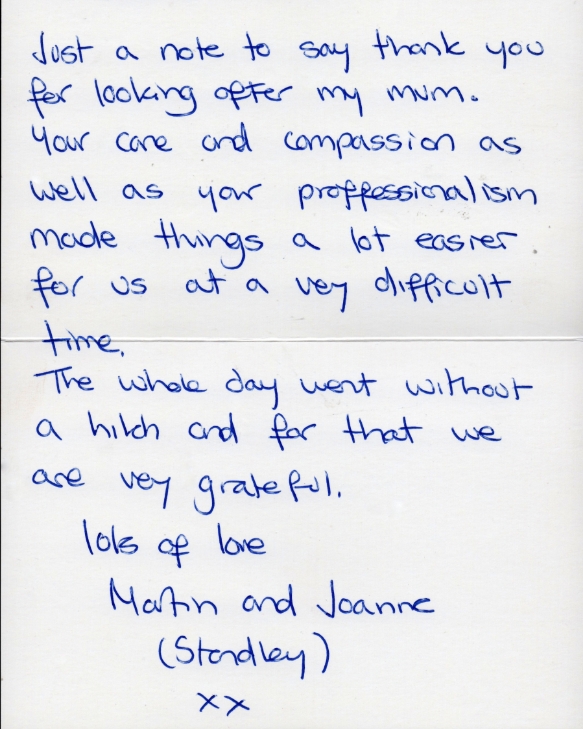 Just a note to say thank you
for looking after my mum.
Your care and compassion as
well as your proffessionalism
made things a lot easier
for us at a vey difficult
time.
The whole day went without
a hitch and for that we
are vey grateful.
lots of love
Martin and Joanne
(Standley)
xx